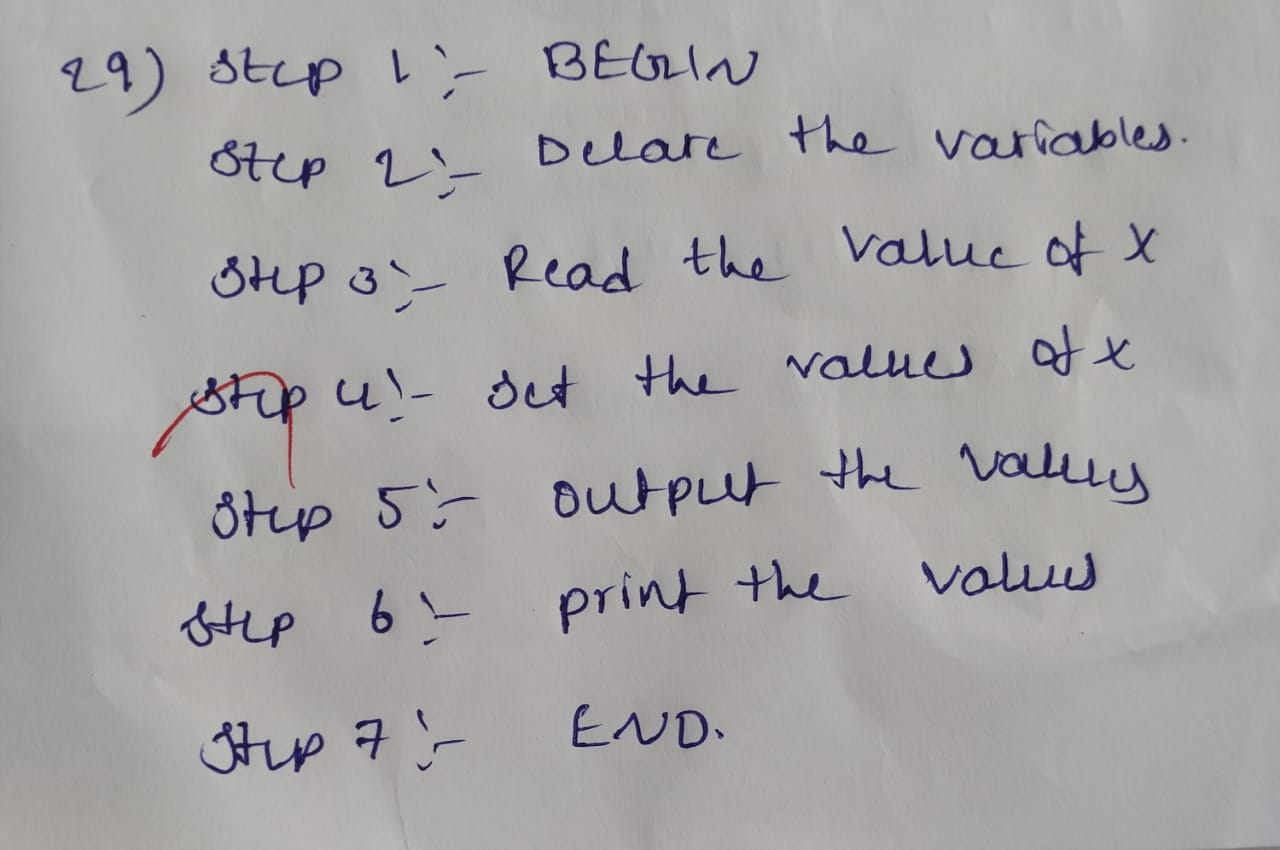 29) Step 1:- BEGIN
Step 2:- Delare the variables.
Step 3:- Read the value of x
Step 4:- Set the values of x
Step 5:- output the values
Step 6:- print the values
Step 7:- END.